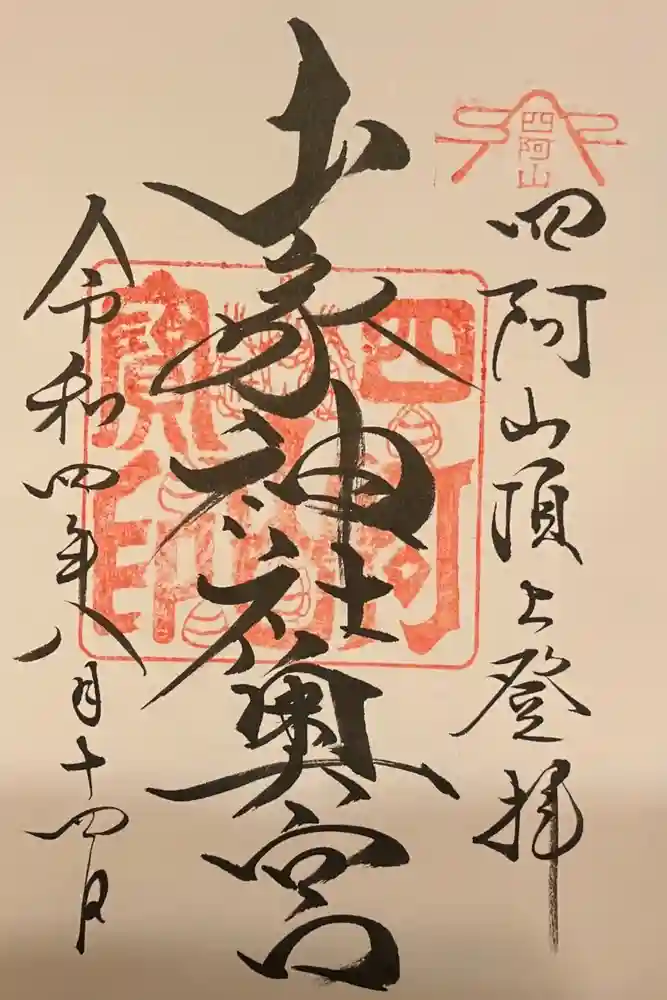 四阿山
四阿山頂上登拝
山家神社奥宮
四阿山
寶印
令和四年八月十四日